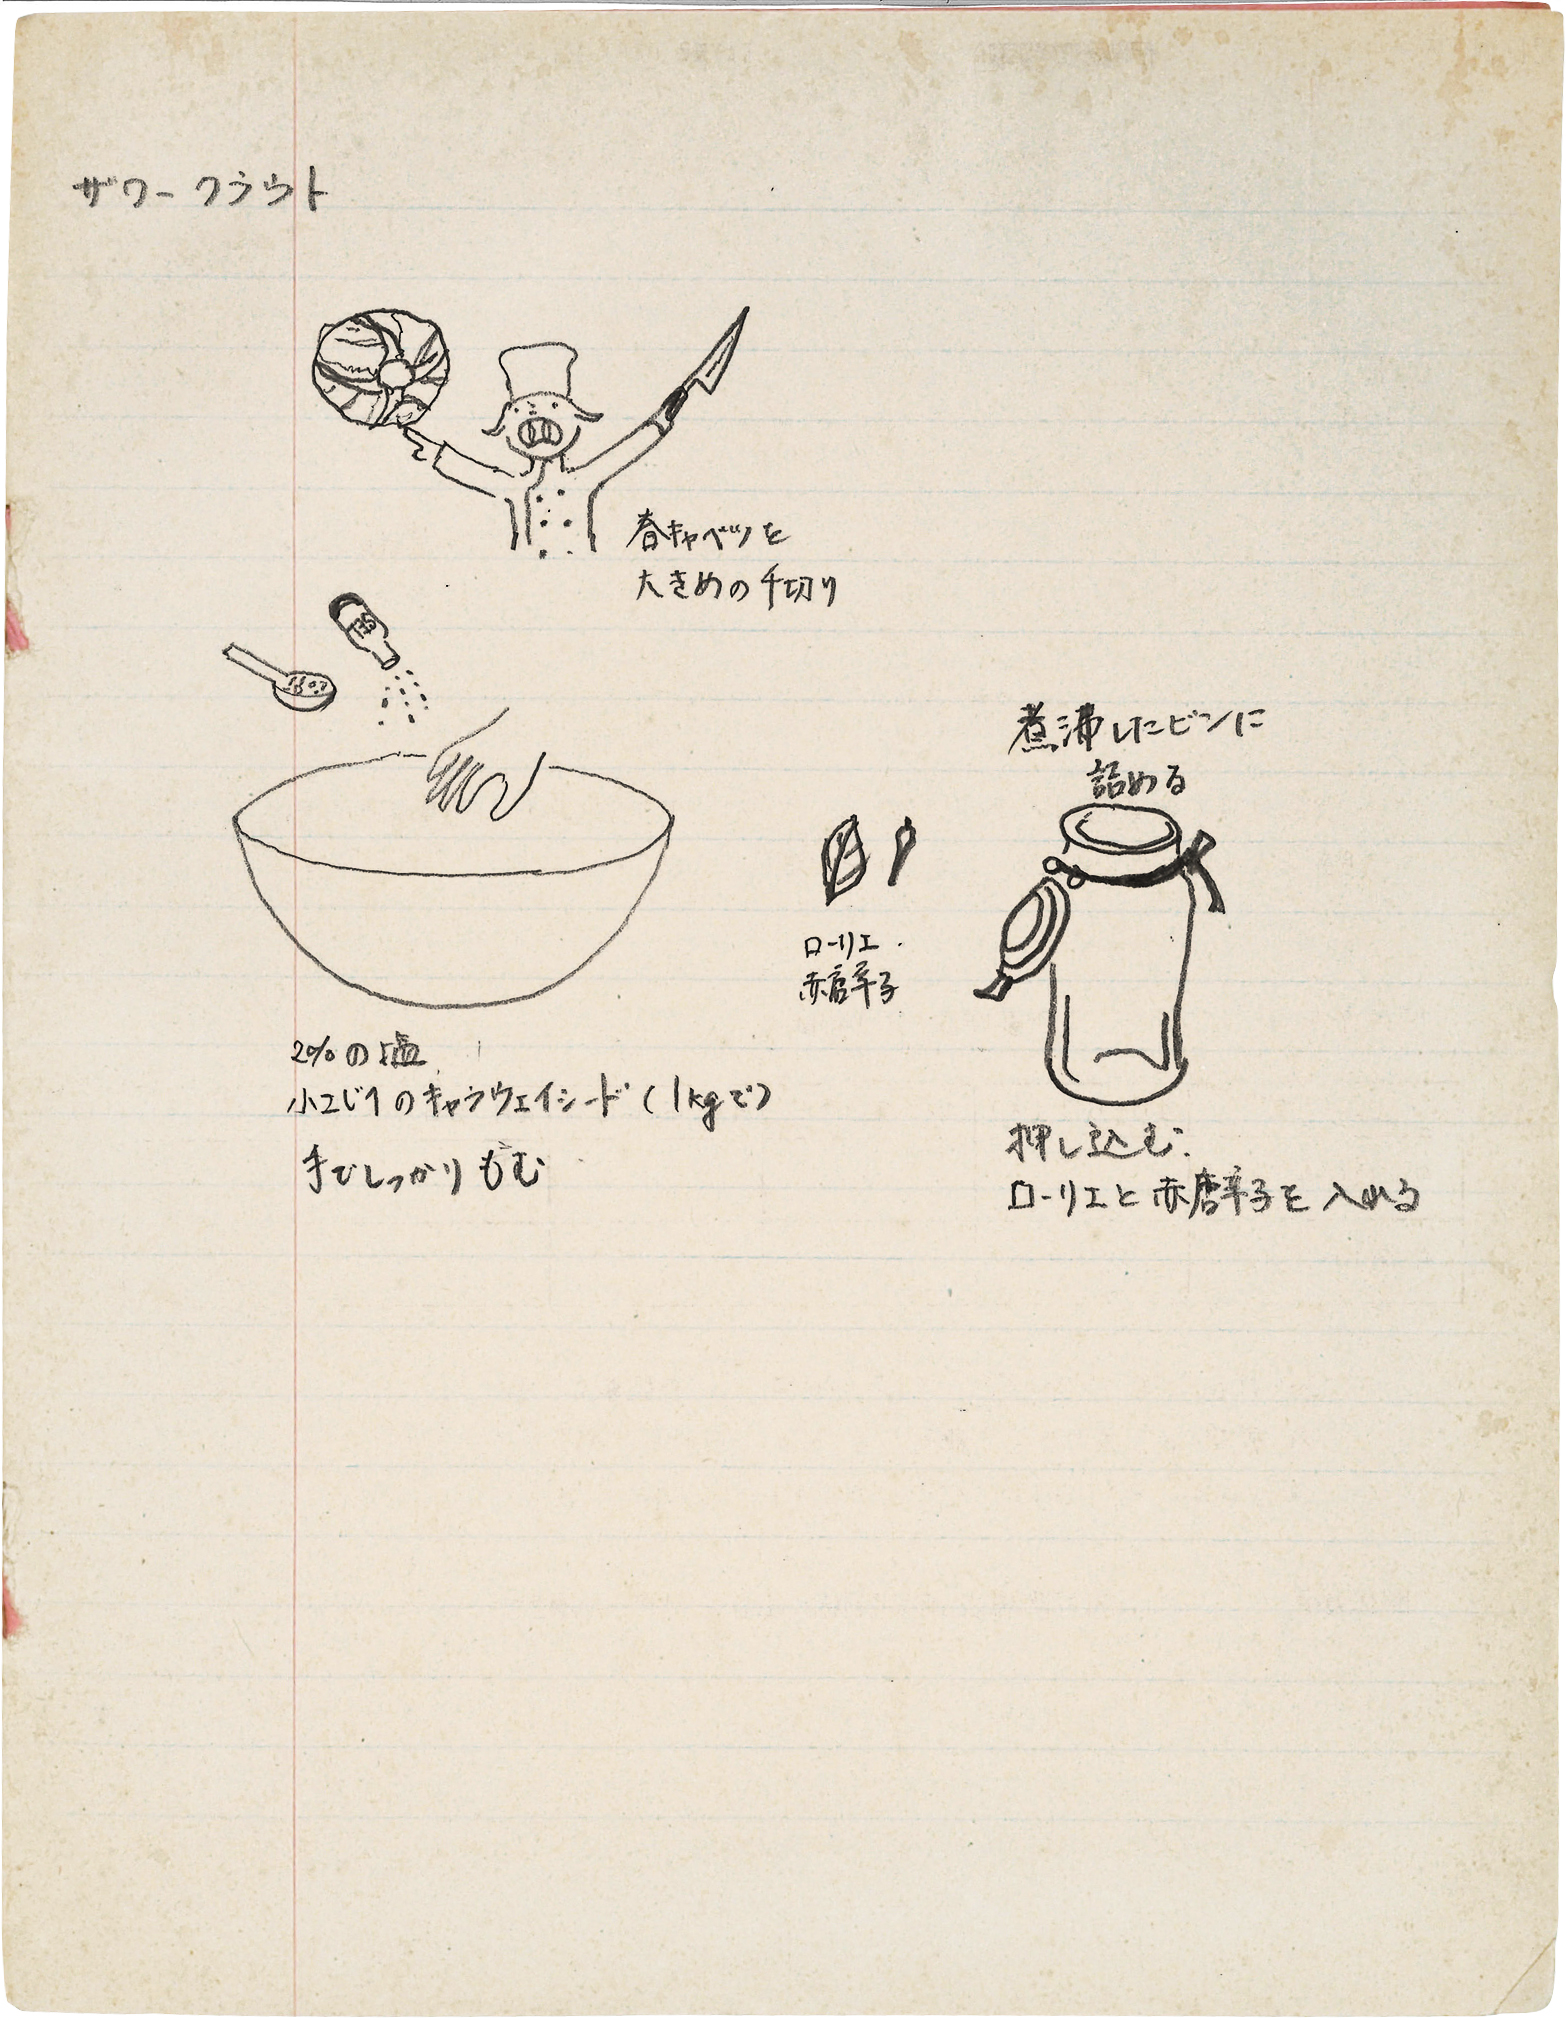 ザワークラウト
春キャベツを
大きめの千切り
煮沸したビンに
詰める
ローリエ
赤唐辛子
2%の塩
小さじ1のキャラウェイシード(1kgで)
手でしっかりもむ
押し込む
ローリエと赤唐辛子を入れる